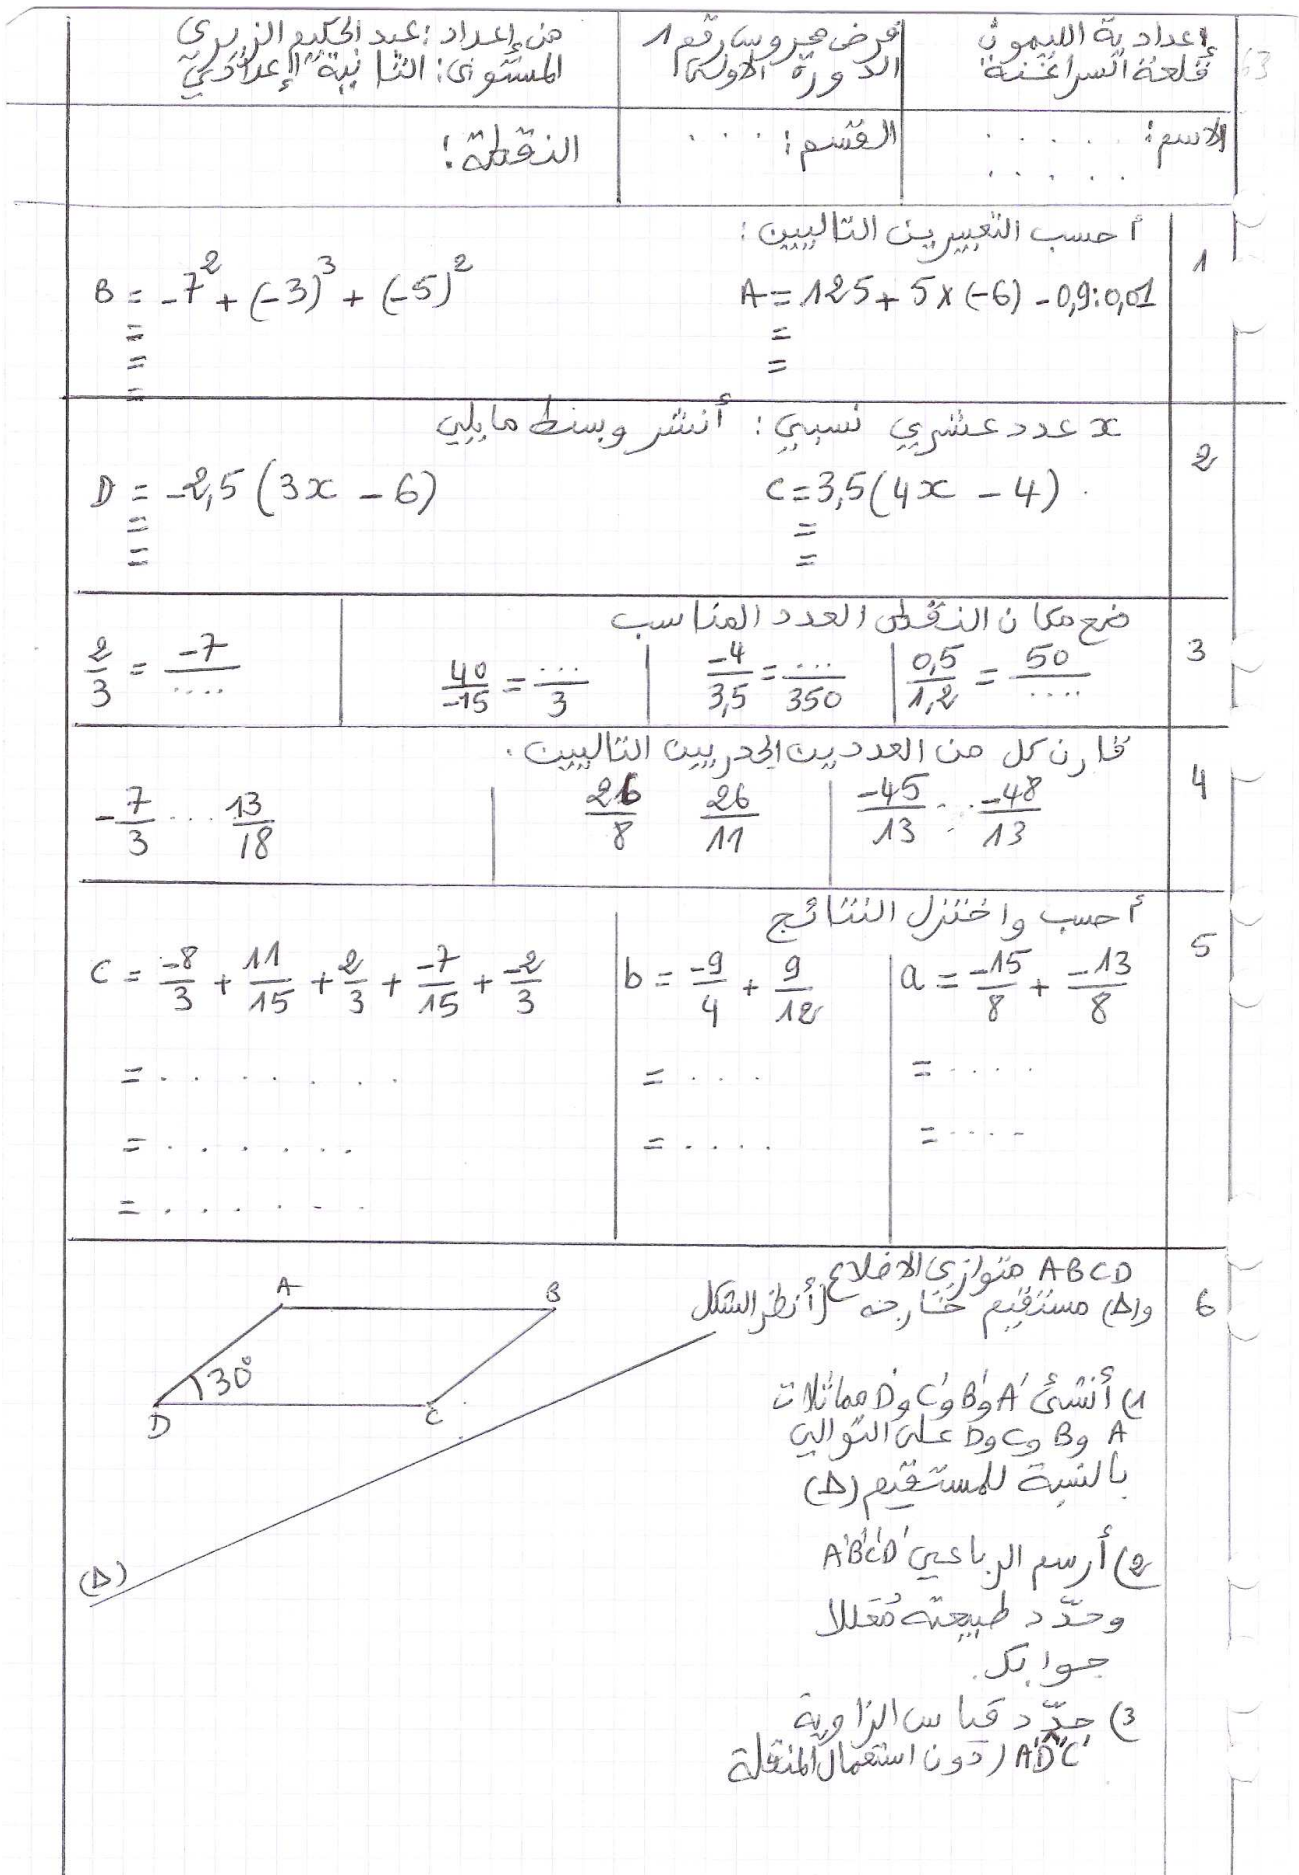 إعدادية الليمون
قلعة السراغنة
فرض محروس رقم 1
الدورة الأولى
من إعداد: عبد الحكيم الزبري
المستوى: الثانية إعدادي
63
الاسم: . . . . .
. . . . .
القسم: . . . .
النقطة:
1
أحسب التعبيرين التاليين:
A = 125 + 5 × (-6) - 0,9:0,01
=
=
B = -7² + (-3)³ + (-5)²
=
=
=
2
x عدد عشري نسبي: أنشر وبسط ما يلي
C = 3,5(4x - 4)
=
=
D = -2,5(3x - 6)
=
=
3
ضع مكان النقط العدد المناسب
0,5/1,2 = 50/....
-4/3,5 = .../350
40/-15 = .../3
2/3 = -7/....
4
قارن كل من العددين الجدريين التاليين.
-45/13 ... -48/13
26/8 26/11
-7/3 ... 13/18
5
أحسب واختزل النتائج
a = -15/8 + -13/8
= ....
= ....
b = -9/4 + 9/12
= ....
= ....
C = -8/3 + 11/15 + 2/3 + -7/15 + -2/3
= . . . . . . . .
= . . . . . . .
= . . . . . . .
6
ABCD متوازي الاضلاع
و(Δ) مستقيم خارجه (أنظر الشكل
1) أنشئ A' و B' و C' و D' مماثلات
A و B و C و D على التوالي
بالنسبة للمستقيم (Δ)
2) أرسم الرباعي A'B'C'D'
وحدّد طبيعته مُعللا
جوابك.
3) حدّد قياس الزاوية
A'D'C' (دون استعمال المنقلة
A
B
130°
D
C
(Δ)